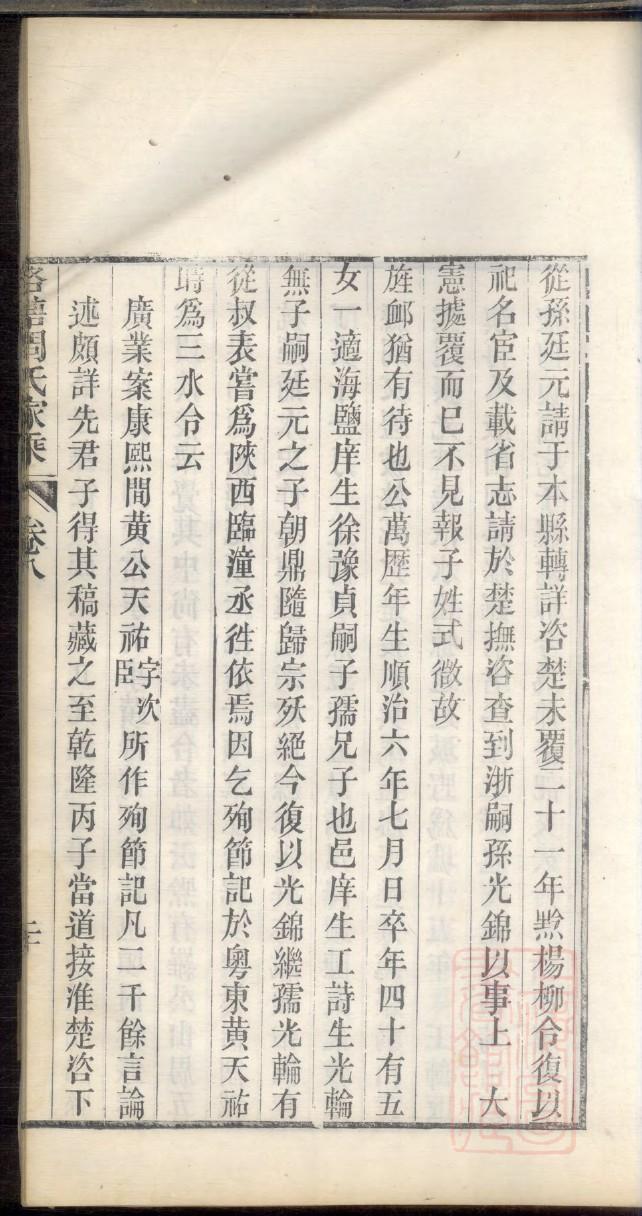 從孫廷元請于本縣轉詳咨楚未覆二十一年黔楊柳令復以
祀名宦及載省志請於楚撫咨查到浙嗣孫光錦以事上　大
憲據覆而已不見報子姓式微故
旌卹猶有待也公萬歷年生順治六年七月日卒年四十有五
女一適海鹽庠生徐豫貞嗣子孺兄子也邑庠生工詩生光輪
無子嗣廷元之子朝鼎隨歸宗殀絕今復以光錦繼孺光輪有
從叔表嘗爲陝西臨潼丞徃依焉因乞殉節記於粵東黄天祐
時爲三水令云
廣業案康熙間黄公天祐字次臣所作殉節記凡二千餘言論
述頗詳先君子得其稿藏之至乾隆丙子當道接准楚咨下
洛塘周氏家乘　卷八